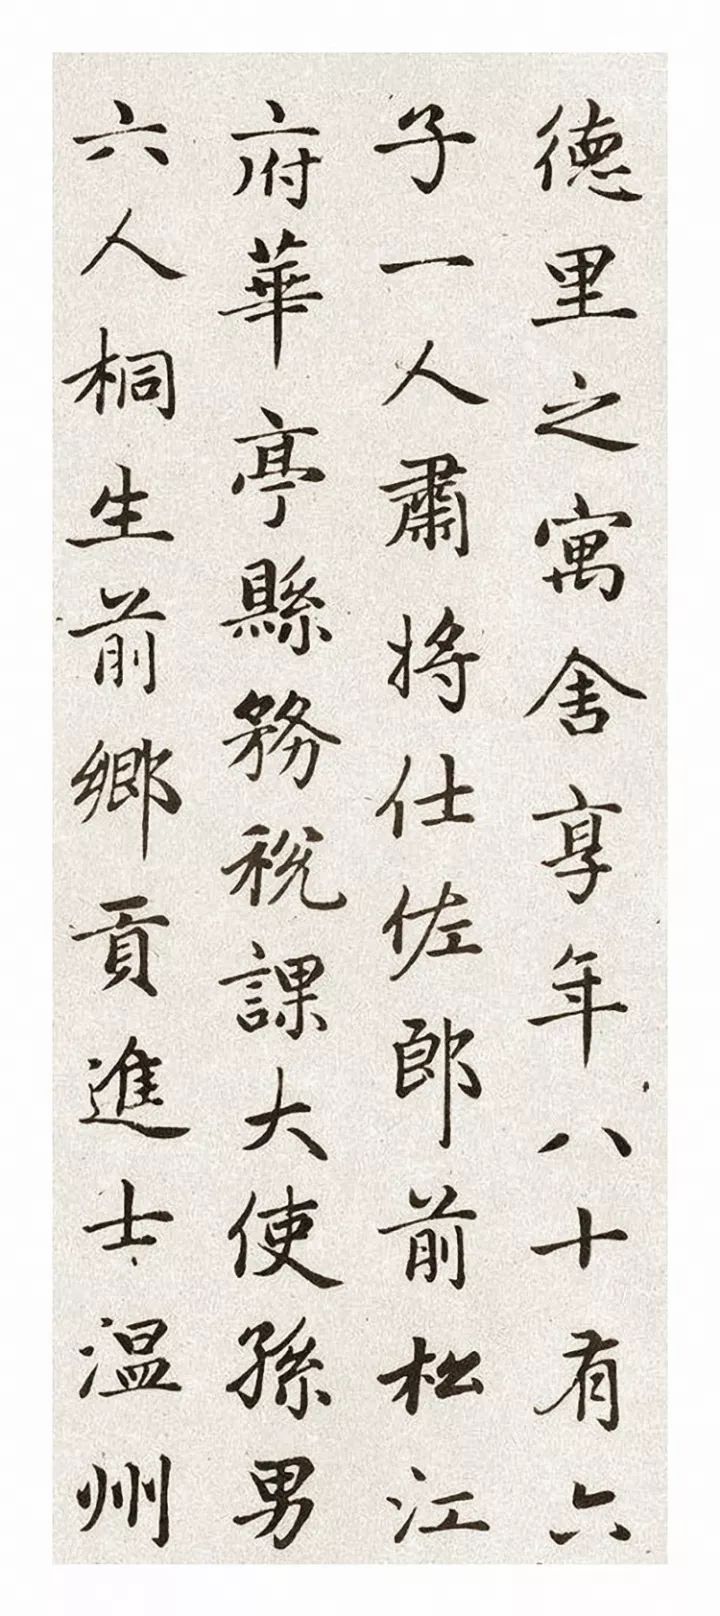 德里之寓舍享年八十有六
子一人肅將仕佐郎前松江
府華亭縣務稅課大使孫男
六人桐生前鄉貢進士溫州